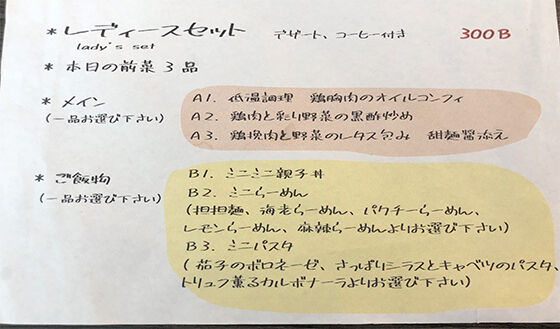 * レディースセット デザート、コーヒー付き 300B
lady's set
* 本日の前菜 3 品
* メイン
(一品お選び下さい)
A1. 低温調理 鶏胸肉のオイルコンフィ
A2. 鶏肉と彩り野菜の黒酢炒め
A3. 鶏挽肉と野菜のレタス包み 甜麺醤添え
* ご飯物
(一品お選び下さい)
B1. ミニミニ親子丼
B2. ミニらーめん
(担担麺、海老らーめん、パクチーらーめん、
レモンらーめん、麻辣らーめんよりお選び下さい)
B3. ミニパスタ
(茄子のボロネーゼ、さっぱりシラスとキャベツのパスタ、
トリュフ薫るカルボナーラよりお選び下さい)